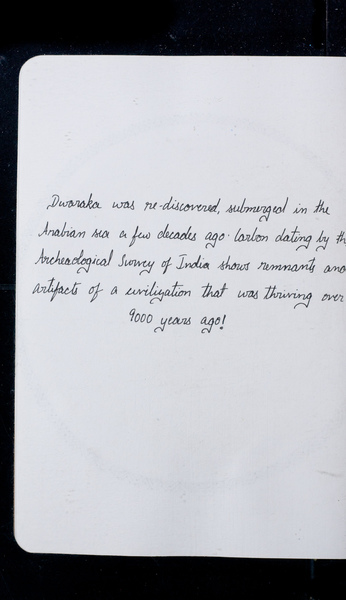 Dwaraka was re-discovered, submerged in the
Arabian sea a few decades ago. Carbon dating by th
Archeaological Survey of India shows remnants and
artifacts of a civilization that was thriving over
9000 years ago!